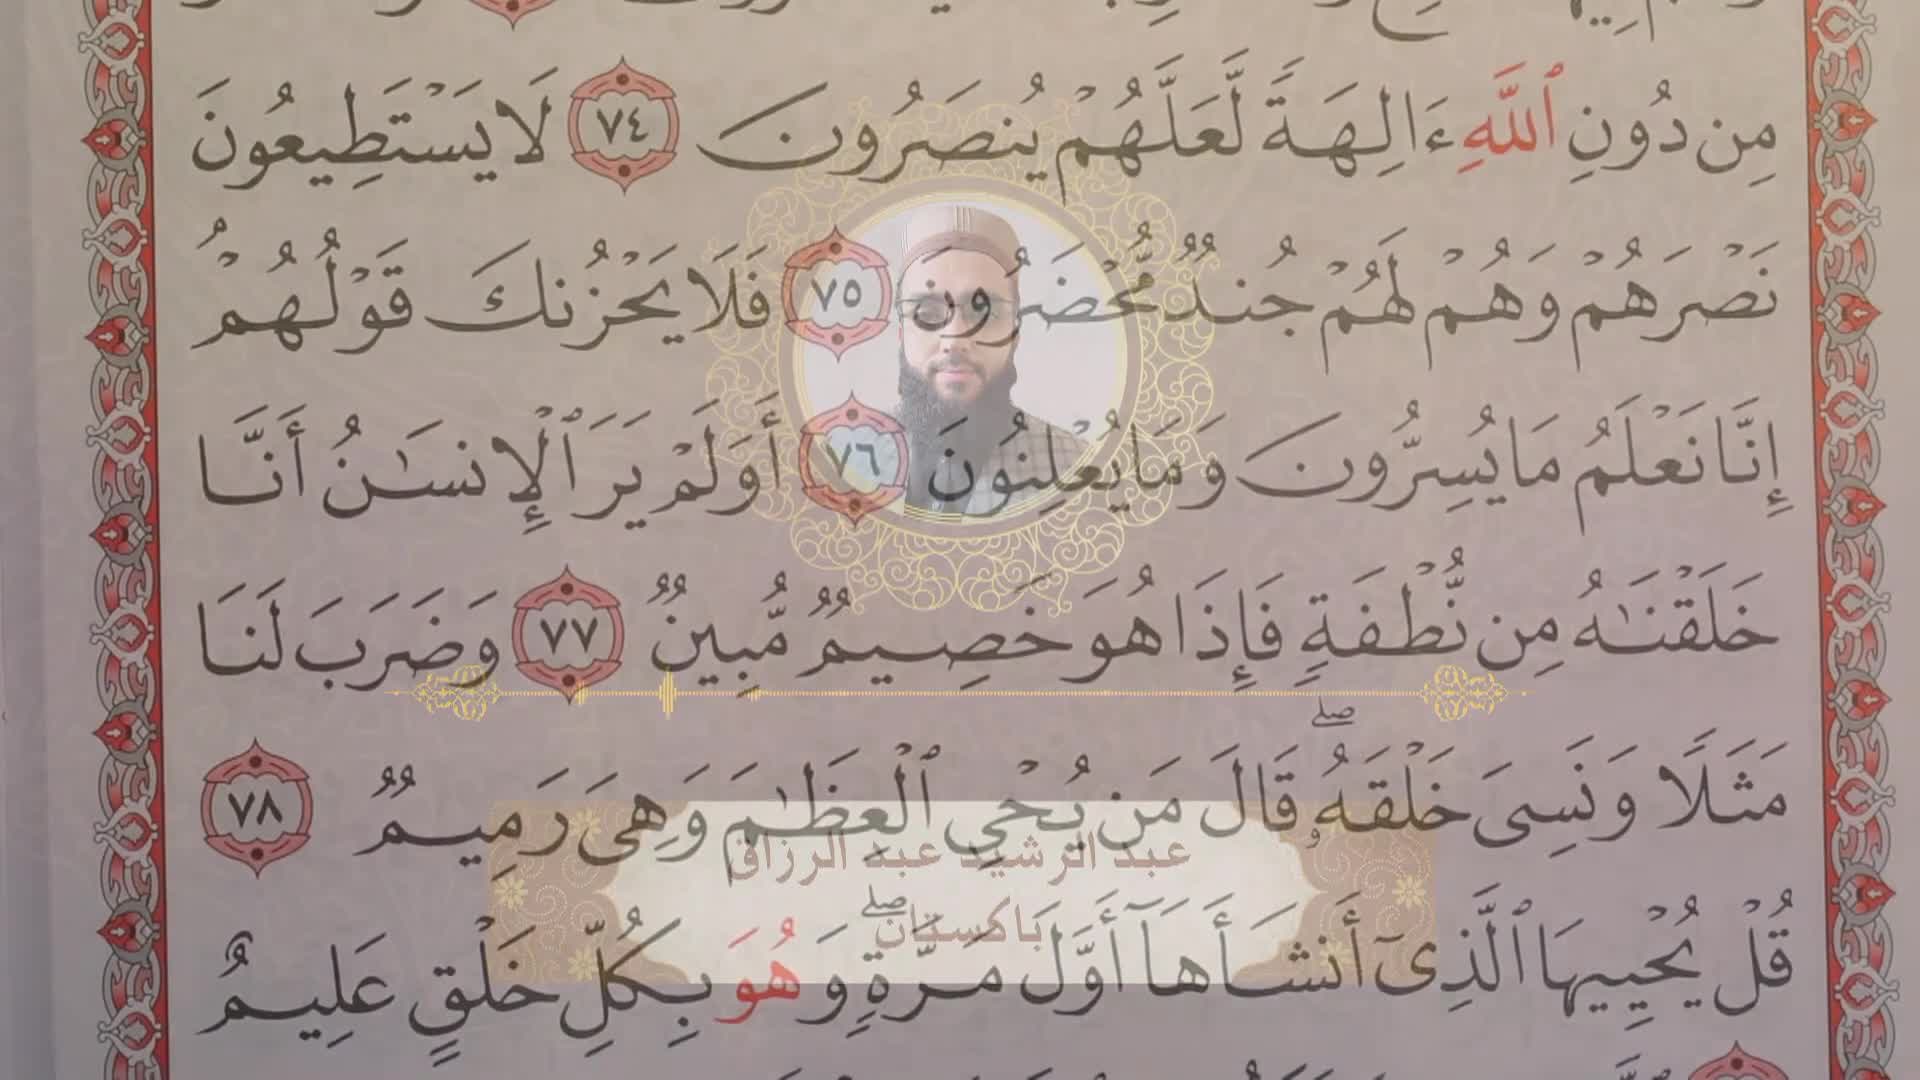 مِن دُونِ ٱللَّهِ ءَالِهَةً لَّعَلَّهُمْ يُنصَرُونَ ٧٤ لَا يَسْتَطِيعُونَ
نَصْرَهُمْ وَهُمْ لَهُمْ جُندٌ مُّحْضَرُونَ ٧٥ فَلَا يَحْزُنكَ قَوْلُهُمْ ۘ
إِنَّا نَعْلَمُ مَا يُسِرُّونَ وَمَا يُعْلِنُونَ ٧٦ أَوَلَمْ يَرَ ٱلْإِنسَٰنُ أَنَّا
خَلَقْنَٰهُ مِن نُّطْفَةٍ فَإِذَا هُوَ خَصِيمٌ مُّبِينٌ ٧٧ وَضَرَبَ لَنَا
مَثَلًا وَنَسِىَ خَلْقَهُۥ ۖ قَالَ مَن يُحْىِ ٱلْعِظَٰمَ وَهِىَ رَمِيمٌ ٧٨
عبد الرشيد عبد الرزاق
باكستان
قُلْ يُحْيِيهَا ٱلَّذِىٓ أَنشَأَهَآ أَوَّلَ مَرَّةٍ ۖ وَهُوَ بِكُلِّ خَلْقٍ عَلِيمٌ